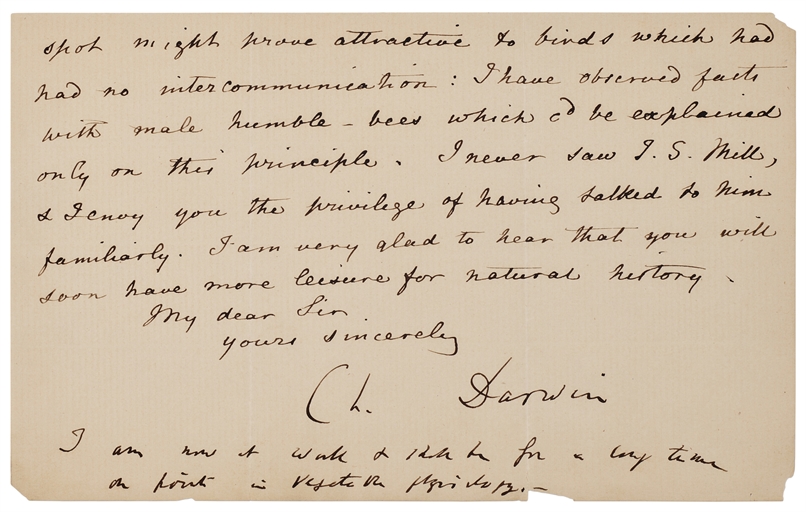 spot might prove attractive to birds which had
had no intercommunication: I have observed facts
with male humble-bees which cd be explained
only on this principle. I never saw J. S. Mill,
& I envy you the privilege of having talked to him
familiarly. I am very glad to hear that you will
soon have more leisure for natural history.
My dear Sir
yours sincerely
Ch. Darwin
I am now at work & shall be for a long time
on points in vegetable physiology.—